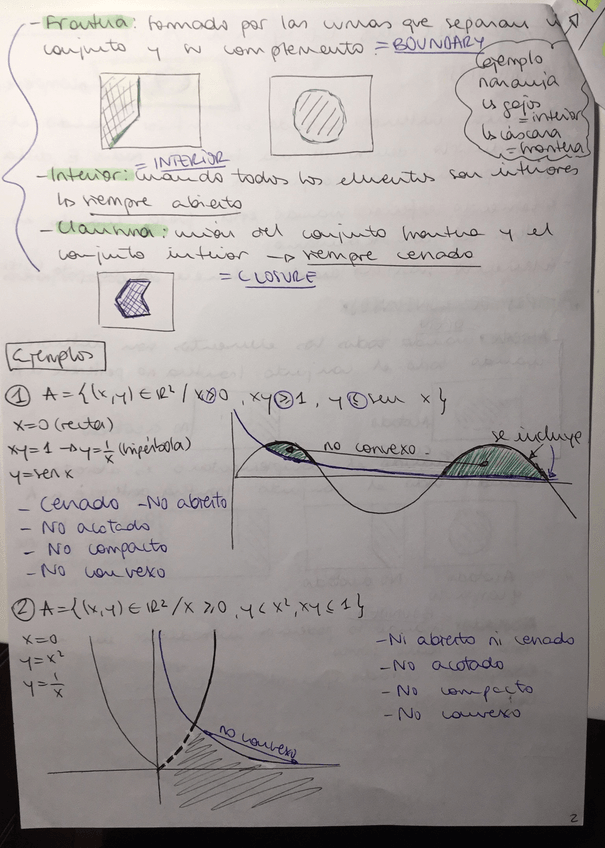 - Frontera: formado por las curvas que separan un
conjunto y su complemento = BOUNDARY
ejemplo
naranja
↳ gajos
= interior
↳ cáscara
= frontera
= INTERIOR
- Interior: cuando todos los elementos son interiores
↳ siempre abierto
- Clausura: unión del conjunto frontera y el
conjunto interior → siempre cerrado
= CLOSURE
Ejemplos
① A = {(x,y) ∈ ℝ² / x ≥ 0, xy ≥ 1, y ≤ sen x}
x=0 (recta)
xy=1 → y=1/x (hipérbola)
y=sen x
- Cerrado - No abierto
- No acotado
- No compacto
- No convexo
no convexo
se incluye
② A = {(x,y) ∈ ℝ² / x ≥ 0, y < x², xy ≤ 1}
x=0
y=x²
y=1/x
no convexo
- Ni abierto ni cerrado
- No acotado
- No compacto
- No convexo
2